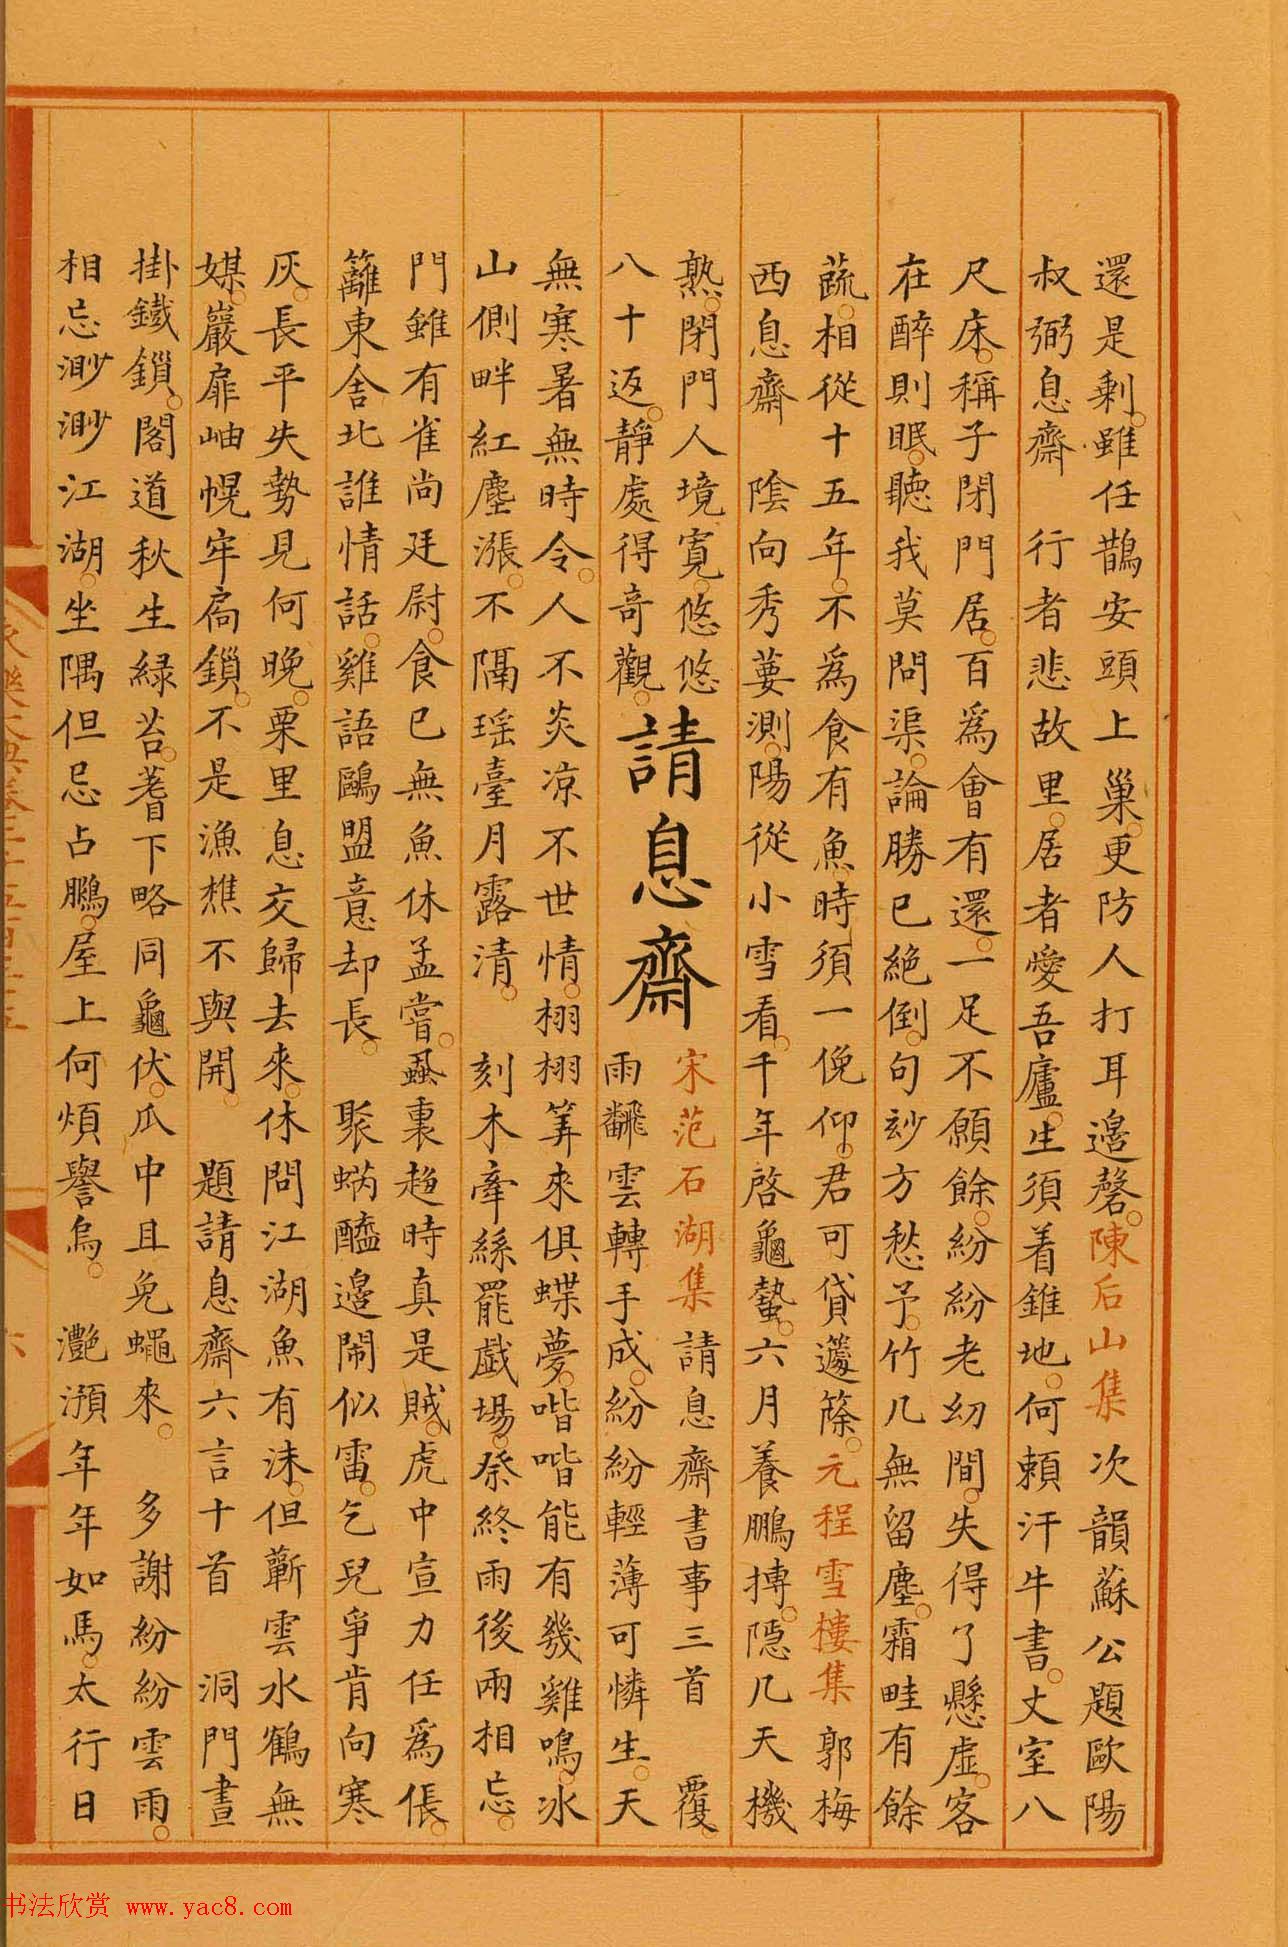 還是剩雖任鵲安頭上巢更防人打耳邊磬陳后山集次韻蘇公題歐陽
叔弼息齋 行者悲故里居者愛吾廬生須着錐地何賴汗牛書丈室八
尺床稱子閉門居百為會有還一足不願餘紛紛老幼間失得了懸虛客
在醉則眠聽我莫問渠論勝已絶倒句玅方愁予竹几無留塵霜畦有餘
蔬相從十五年不為食有魚時須一俛仰君可貸蘧篨元程雪樓集郭梅
西息齋 陰向秀葽測陽從小雪看千年啓龜蟄六月養鵬摶隱几天機
熟閉門人境寬悠悠
八十返靜處得奇觀
請息齋
宋范石湖集請息齋書事三首 覆
雨翻雲轉手成紛紛輕薄可憐生天
無寒暑無時令人不炎凉不世情栩栩筭來俱蝶夢喈喈能有幾雞鳴冰
山側畔紅塵漲不隔瑶臺月露清 刻木牽絲罷戲場祭終雨後兩相忘
門雖有雀尚廷尉食已無魚休孟嘗蝨裏趨時真是賊虎中宣力任為倀
籬東舍北誰情話雞語鷗盟意却長 聚蜹醯邊閙似雷乞兒爭肯向寒
灰長平失勢見何晚栗里息交歸去來休問江湖魚有沬但蘄雲水鶴無
媒巖扉岫幌牢扃鎖不是漁樵不與開 題請息齋六言十首 洞門晝
掛鐵鎖閣道秋生緑苔蓍下略同龜伏瓜中且免蠅來 多謝紛紛雲雨
相忘渺渺江湖坐隅但忌占鵩屋上何煩譽烏 灔澦年年如馬太行日
书法欣赏 www.yac8.com